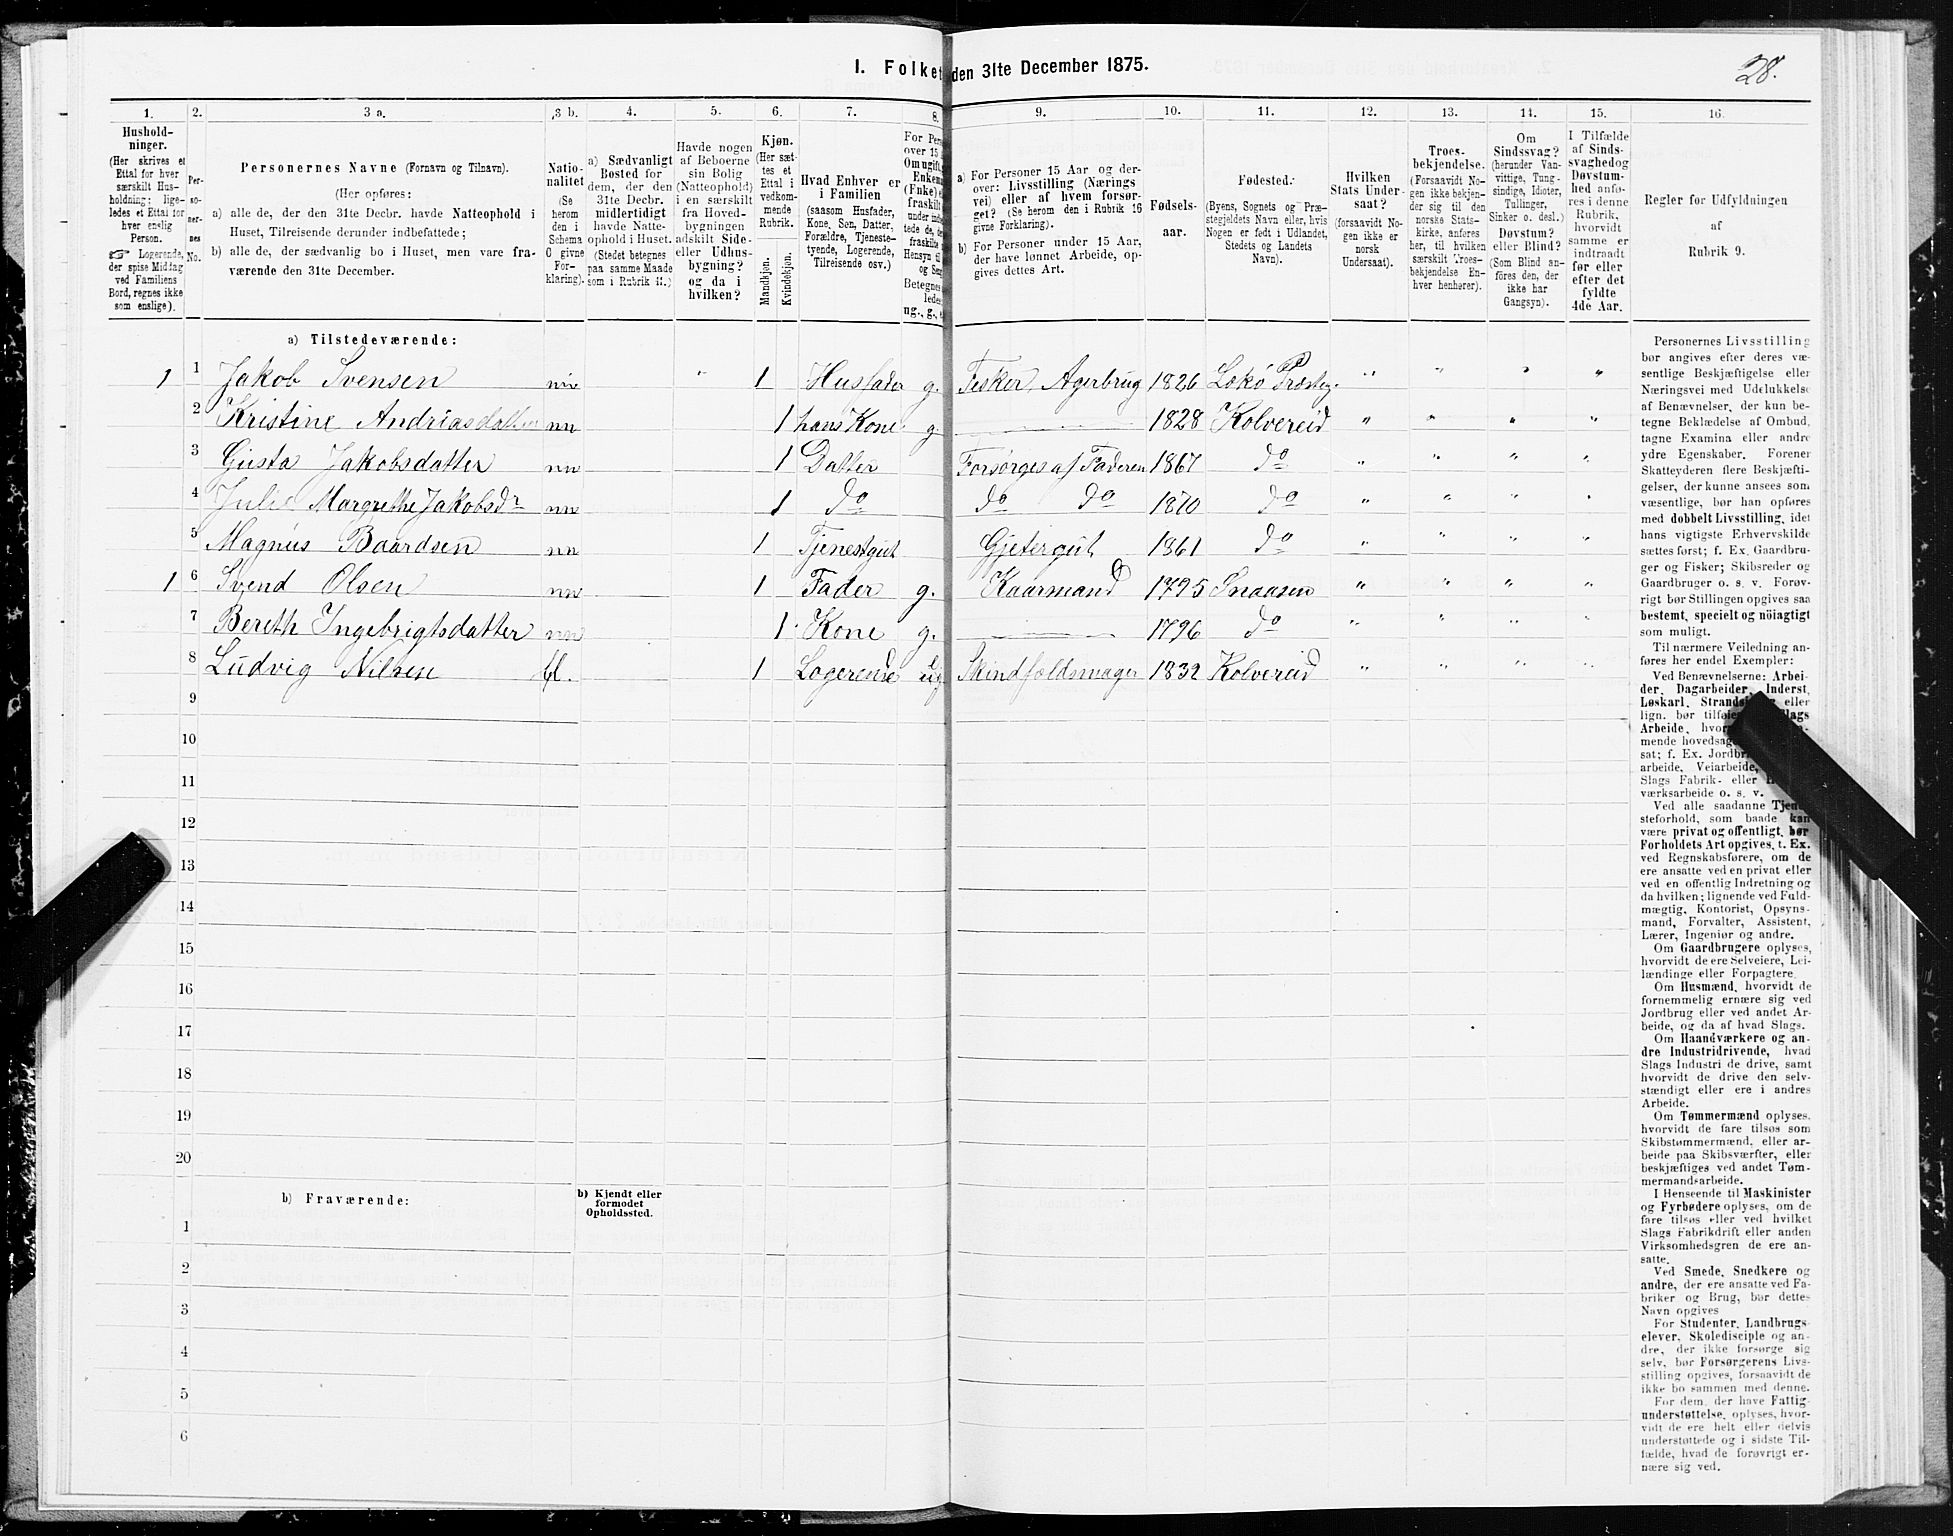 I. Folket
den 31te December 1875.
28.
1. 2. 3 a. 3 b. 4. 5. 6. 7. 8. 9. 10. 11. 12. 13. 14. 15. 16.
Hushold-
ninger.
(Her skrives et
Ettal for hver
særskilt Hus-
holdning; lige-
ledes et Ettal for
hver enslig
Person.
☞ Logerende,
der spise Middag
ved Familiens
Bord, regnes ikke
som enslige).
Per-
so-
ner-
nes
No.
Personernes Navne (Fornavn og Tilnavn).
(Her opføres:
a) alle de, der den 31te Decbr. havde Natteophold i
Huset, Tilreisende derunder indbefattede;
b) alle de, der sædvanlig bo i Huset, men vare fra-
værende den 31te December.
Natio-
nalitet
(Se
herom
den i
Schema
C givne
For-
klaring).
a) Sædvanligt
Bosted for
dem, der den
31te Decbr.
midlertidigt
havde Natte-
ophold i Huset.
(Stedet betegnes
paa samme Maade
som i Rubrik 11.)
Havde nogen
af Beboerne
sin Bolig
(Natteophold)
i en særskilt
fra Hoved-
bygningen
adskilt Side-
eller Udhus-
bygning?
og da i
hvilken?
Kjøn.
(Her sæt-
tes et
Ettal i
vedkom-
mende
Rubrik.
Mandkjøn.
Kvindekjøn.
Hvad Enhver er
i Familien
(saasom Husfader,
Kone, Søn, Datter,
Forældre, Tjeneste-
tyende, Logerende,
Tilreisende osv.)
For Pers
over 15
Omugift
Enkema
(Enke) e
fraskilt
under indb
tede de,
fraskilte
Hensyn til
og Se
Betegnes
ledes
ug., g., e
a) For Personer 15 Aar og der-
over: Livsstilling (Nærings
vei) eller af hvem forsør-
get? (Se herom den i Rubrik 16
givne Forklaring).
b) For Personer under 15 Aar,
der have lønnet Arbeide, op-
gives dettes Art.
Fødsels-
aar.
Fødested.
(Byens, Sognets og Præ-
stegjeldets Navn eller, hvis
Nogen er født i Udlandet,
Stedets og Landets
Navn).
Hvilken
Stats Under-
saat?
(forsaavidt No-
gen ikke er
norsk
Undersaat).
Troes-
bekjendelse.
(Forsaavidt No-
gen ikke bekjen-
der sig til den
norske Stats-
kirke, anføres
her, til hvilken
særskilt Troes-
bekjendelse En-
hver henhører).
Om
Sindssvag?
(herunder Van-
vittige, Tung-
sindige, Idioter,
Tullinger,
Sinker o. desl.)
Døvstum?
eller Blind?
(Som Blind an-
føres den, der
ikke har
Gangsyn).
I Tilfælde
af Sinds-
svaghedog
Døvstum-
hed anfø-
res i denne
Rubrik,
hvorvidt
samme er
indtraadt
før eller
efter det
fyldte
4de Aar.
Regler for Udfyldningen
af
Rubrik 9.
a) Tilstedeværende:
1 1 Jakob Svensen nn " 1 Husfader g. Fisker, Agerbrug 1826 Lekø Præsteg. " " " "
2 Kristine Andriasdatter nn 1 hans Kone g. 1828 Kolvereid " " " "
3 Gusta Jakobsdatter nn 1 Datter Forsørges af Faderen 1867 do " " " "
4 Julie Margrethe Jakobsdr nn 1 do do do 1870 do " " " "
5 Magnus Baardsen nn 1 Tjenestgut Gjetergut 1861 do
1 6 Svend Olsen nn 1 Fader g. Kaarmand 1795 Snaasen " " " "
7 Bereth Ingebrigtsdatter nn 1 Kone g. 1796 do " " " "
8 Ludvig Nilsen bl. 1 Logerende ug Skindfældsmager 1832 Kolvereid " " " "
9
10
11
12
13
14
15
16
17
18
19
20
b) Fraværende:
b) Kjendt eller
formodet
Opholdssted.
1
2
3
4
5
6
Personernes Livsstilling
bør angives efter deres væ-
sentlige Beskjæftigelse eller
Næringsvei med Udelukkelse
af Benævnelser, der kun be-
tegne Beklædelse af Ombud,
tagne Examina eller andre
ydre Egenskaber. Forener
Skatteyderen flere Beskjæfti-
gelser, der kunne ansees som
væsentlige, bør han opføres
med dobbelt Livsstilling, idet
hans vigtigste Erhvervskilde
sættes først; f. Ex. Gaardbru-
ger og Fisker; Skibsreder og
Gaardbruger o. s. v. Forøv-
rigt bør Stillingen opgives saa
bestemt, specielt og nöiagtigt
som muligt.
Til nærmere Veiledning an-
føres her endel Exempler:
Ved Benævnelserne: Arbei-
der, Dagarbeider, Inderst,
Løskarl, Strands eller
lign. bør tilføies Slags
Arbeide, hvor
mende hovedsag
sat; f. Ex. Jordbr
arbeide, Veiarbeide,
Slags Fabrik- eller
værksarbeide o. s. v.
Ved alle saadanne Tjene-
steforhold, som baade kan
være privat og offentligt, bør
Forholdets Art opgives, t. Ex.
ved Regnskabsførere, om de
ere ansatte ved en privat eller
ved en offentlig Indretning og
da hvilken; lignende ved Fuld-
mægtig, Kontorist, Opsyns-
mand, Forvalter, Assistent,
Lærer, Ingeniør og andre.
Om Gaardbrugere oplyses,
hvorvidt de ere Selveiere, Lei-
lændinge eller Forpagtere.
Om Husmænd, hvorvidt de
fornemmelig ernære sig ved
Jordbrug eller ved andet Ar-
beide, og da af hvad Slags.
Om Haandværkere og an-
dre Industridrivende, hvad
Slags Industri de drive, samt
hvorvidt de drive den selv-
stændigt eller ere i andres
Arbeide.
Om Tømmermænd oplyses,
hvorvidt de fare tilsøs som
Skibstømmermænd, eller ar-
beide paa Skibsværfter, eller
beskjæftiges ved andet Tøm-
mermandsarbeide.
I Henseende til Maskinister
og Fyrbødere oplyses, om de
fare tilsøs eller ved hvilket
Slags Fabrikdrift eller anden
Virksomhedsgren de ere an-
satte.
Ved Smede, Snedkere og
andre, der ere ansatte ved Fa-
briker og Brug, bør dettes
Navn opgives
For Studenter, Landbrugs-
elever, Skoledisciple og an-
dre, der ikke forsørge sig
selv, bør Forsørgerens Livs-
stilling opgives, forsaavidt de
ikke bo sammen med denne.
For dem, der have Fattig-
understøttelse, oplyses, hvor-
vidt de ere helt eller delvis
understøttede og i sidste Til-
fælde, hvad de forøvrigt er-
nære sig ved.